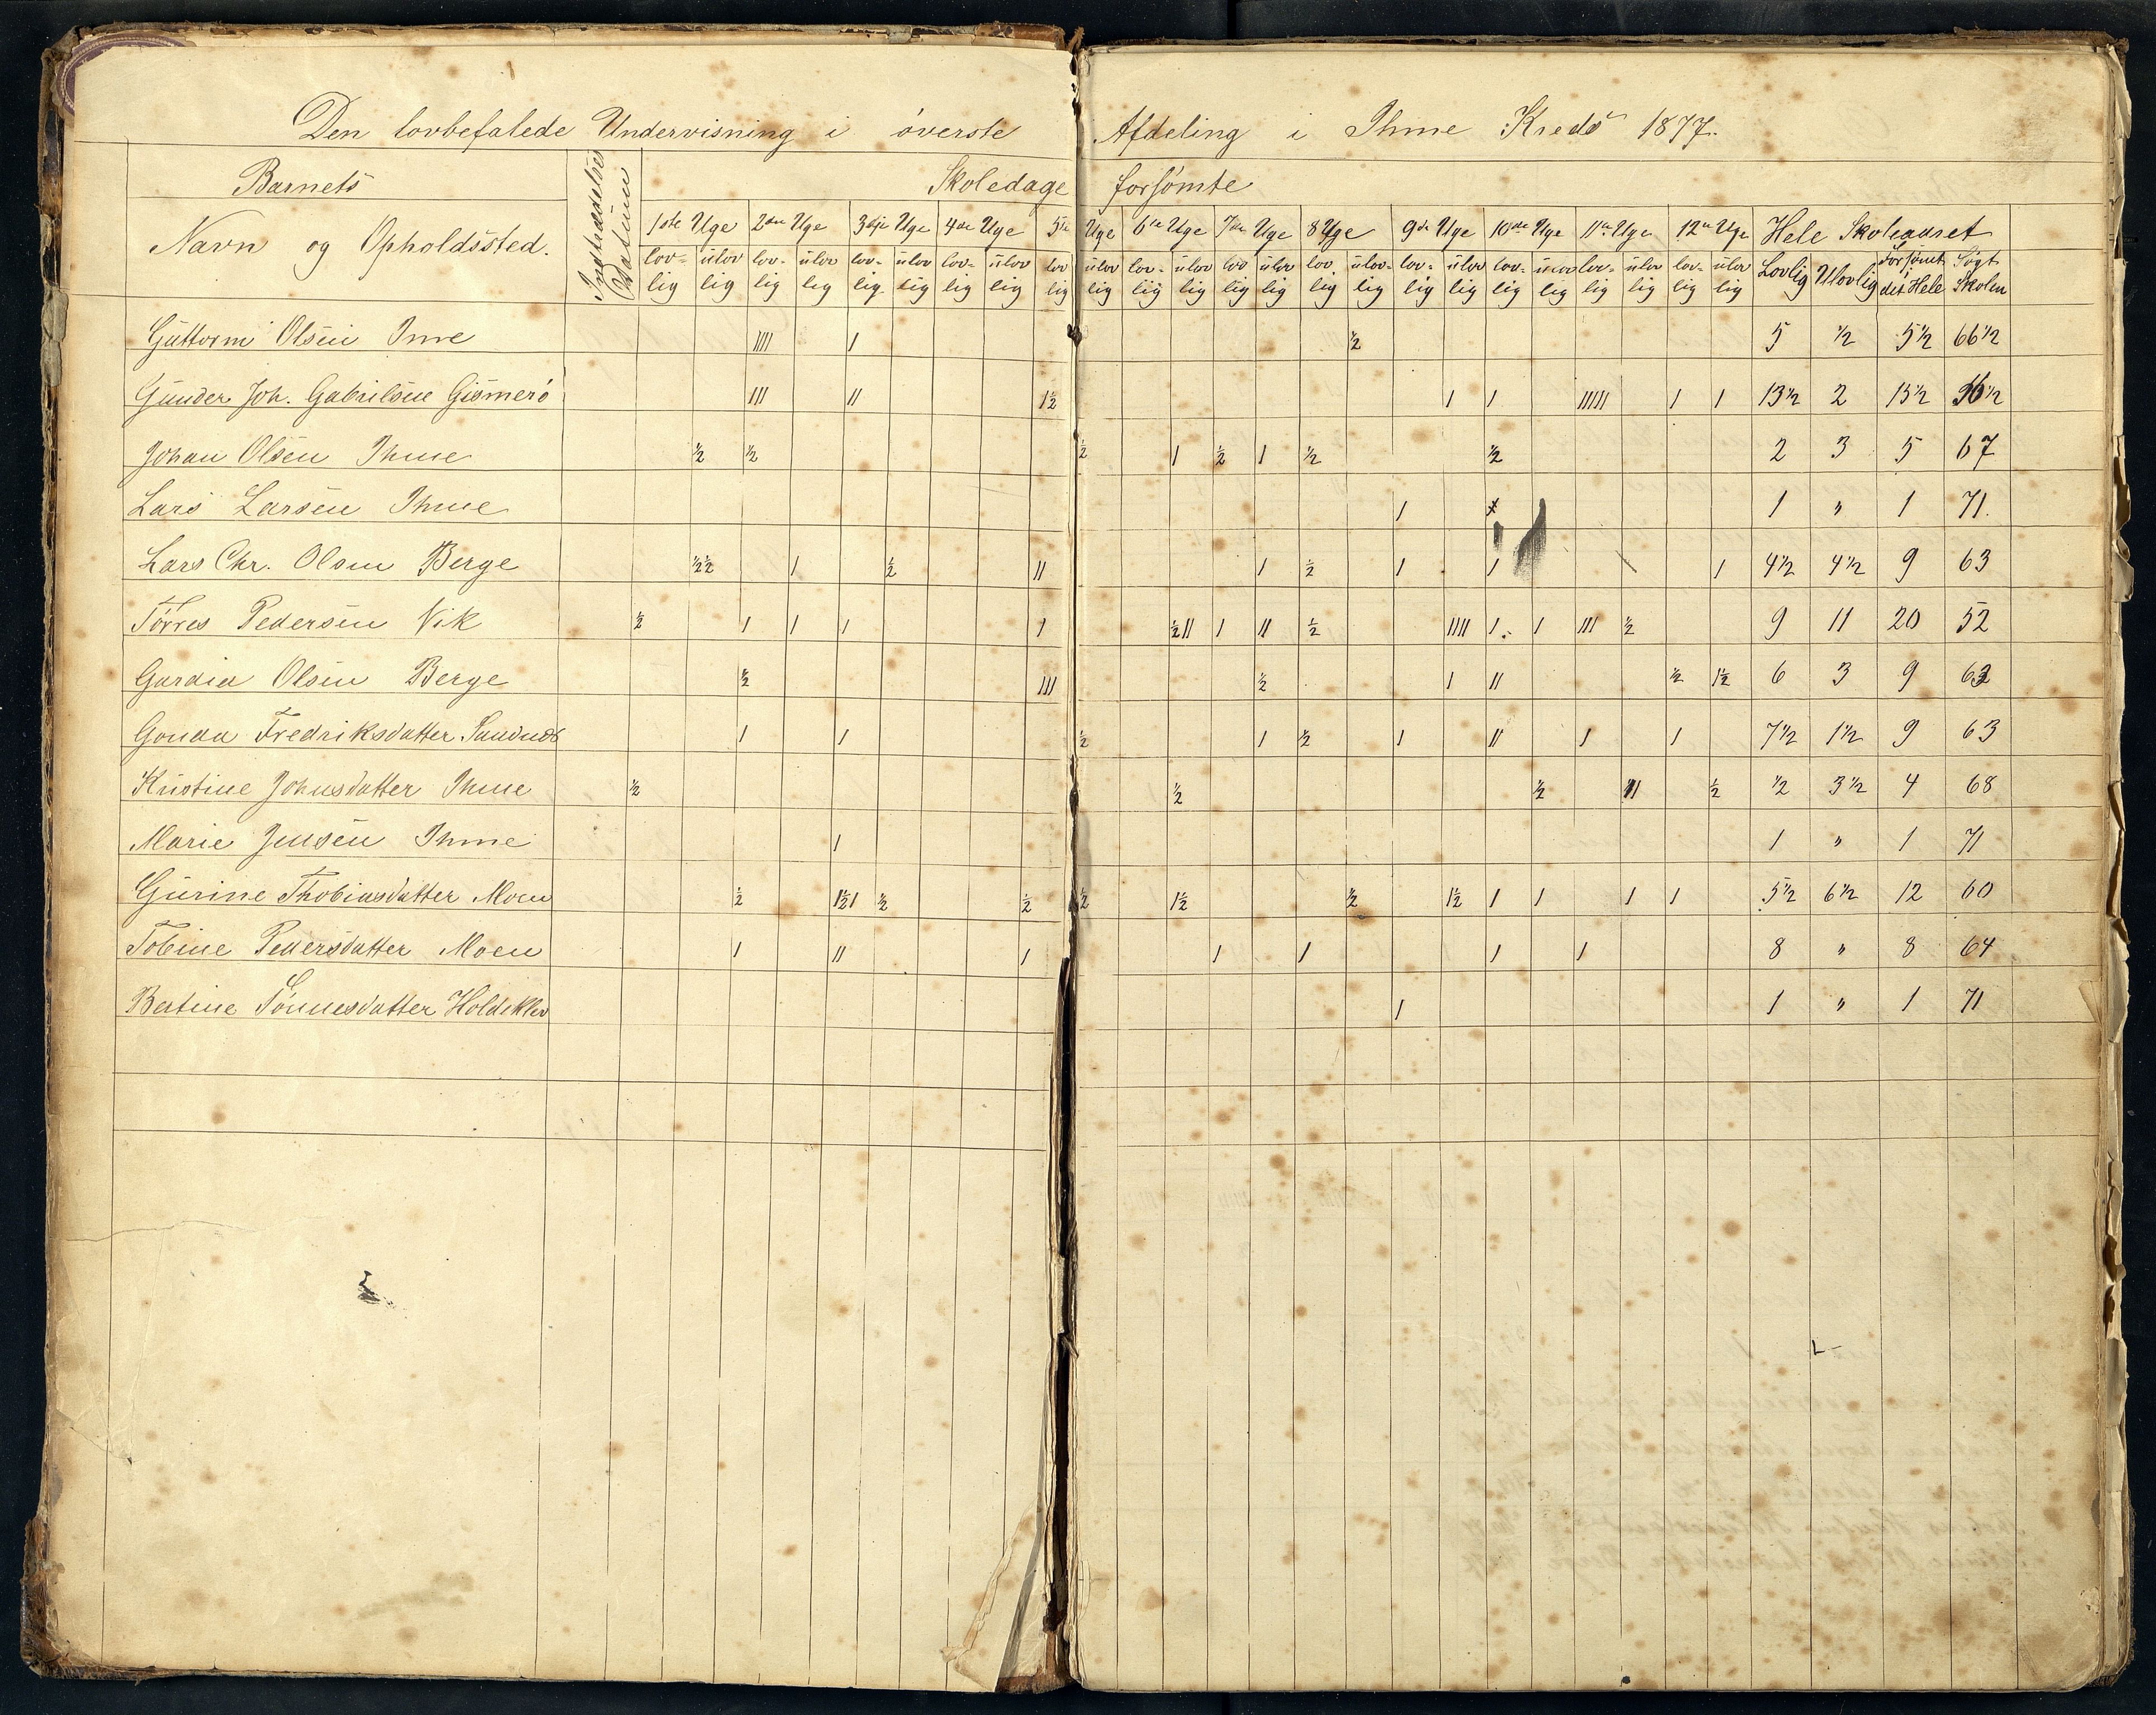 Den lovbefalede Undervisning i överste Afdeling i Ihme Kreds 1877.
Barnets Indtrædelses Datum Skoledage forsömte
Navn og Opholdssted. 1ste Uge 2den Uge 3dje Uge 4de Uge 5te Uge 6te Uge 7de Uge 8 Uge 9de Uge 10de Uge 11te Uge 12te Uge Hele Skoleaaret
lovlig ulovlig lovlig ulovlig lovlig ulovlig lovlig ulovlig lovlig ulovlig lovlig ulovlig lovlig ulovlig lovlig ulovlig lovlig ulovlig lovlig ulovlig lovlig ulovlig lovlig ulovlig Lovlig Ulovlig Forsömt det Hele Sögt Skolen
Guttorm Olsen Ime IIII I ½ 5 ½ 5½ 66½
Gunder Joh. Gabrilsen Gismerö III II 1½ I I IIIII I I 13½ 2 15½ 56½
Johan Olsen Ihme ½ ½ ½ I ½ I ½ ½ 2 3 5 67
Lars Larsen Ihme I 1 " 1 71.
Lars Chr. Olsen Berge ½½ I ½ II I ½ I I \ I 4½ 4½ 9 63
Törres Pedersen Vik ½ I I I I ½II I II ½ IIII I. I III ½ 9 11 20 52
Gurdia Olsen Berge ½ III ½ I II ½ 1½ 6 3 9 63
Fredriksdatter I I ½ I ½ I II I I 7½ 1½ 9 63
Kristine Johnsdatter Ihme ½ ½ ½ II ½ ½ 3½ 4 68
Marie Jensen Ihme I 1 " 1 71
Gurine Thobiasdatter Moen ½ 1½I ½ ½ ½ 1½ ½ 1½ I I I I 5½ 6½ 12 60
Tobine Pedersdatter Moen I II I I I I I 8 " 8 64
Bertine Tönnesdatter Holdeklev I 1 " 1 71